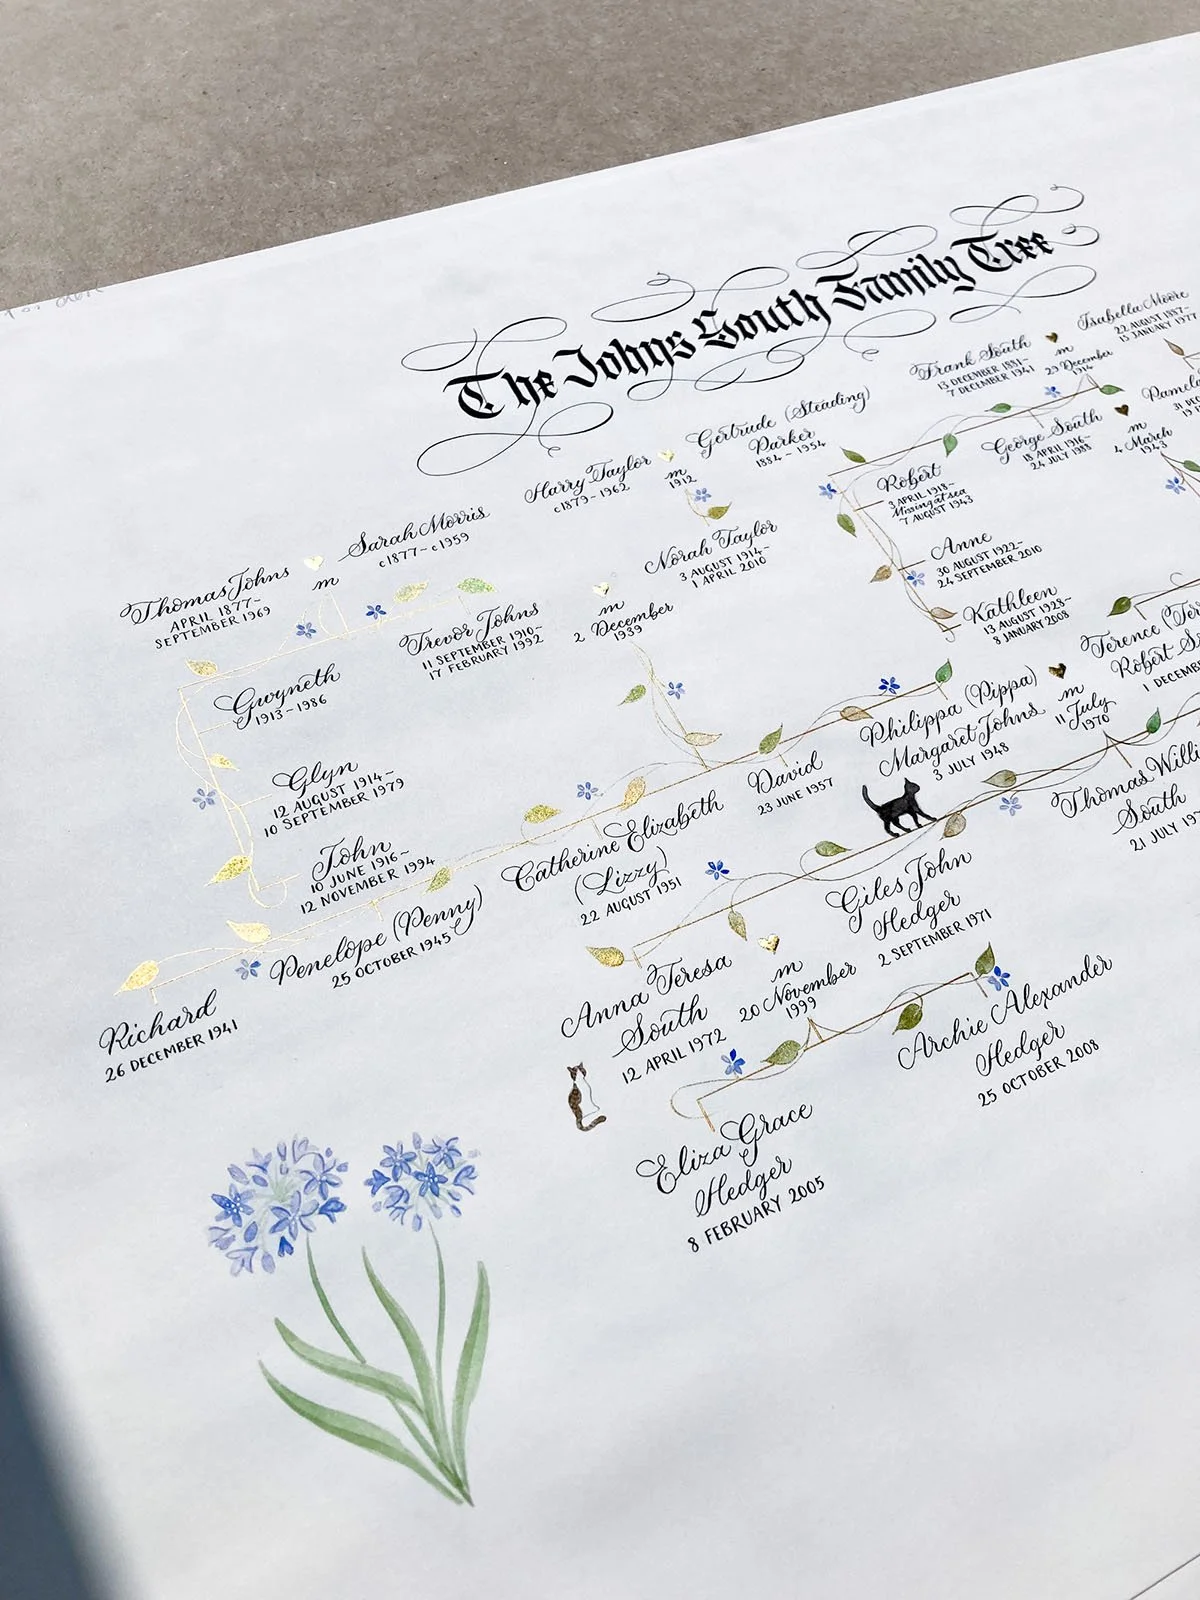 The Johns South Family Tree
Isabella Moore
22 AUGUST 1887–
15 JANUARY 1977
Frank South
13 DECEMBER 1881–
7 DECEMBER 1941
m
29 December
1914
Gertrude (Steading)
Parker
1884 – 1954
Harry Taylor
c1879 – 1962
m
1912
George South
18 APRIL 1916–
24 JULY 1988
m
4 March
1943
Robert
3 APRIL 1918–
Missing at sea
7 AUGUST 1943
Sarah Morris
c1877 – c1959
Thomas Johns
APRIL 1877–
SEPTEMBER 1969
m
Norah Taylor
3 AUGUST 1914–
1 APRIL 2010
Anne
30 AUGUST 1922–
24 SEPTEMBER 2010
Kathleen
13 AUGUST 1928–
8 JANUARY 2008
Trevor Johns
11 SEPTEMBER 1910–
17 FEBRUARY 1992
m
2 December
1939
Gwyneth
1913 – 1986
Glyn
12 AUGUST 1914–
10 SEPTEMBER 1979
John
10 JUNE 1916–
12 NOVEMBER 1994
Philippa (Pippa)
Margaret Johns
3 JULY 1948
m
11 July
1970
Terence
Robert
1
David
23 JUNE 1957
Catherine Elizabeth
(Lizzy)
22 AUGUST 1951
Penelope (Penny)
25 OCTOBER 1945
Richard
26 DECEMBER 1941
Thomas
South
21 JULY
Giles John
Hedger
2 SEPTEMBER 1971
Anna Teresa
South
12 APRIL 1972
m
20 November
1999
Archie Alexander
Hedger
25 OCTOBER 2008
Eliza Grace
Hedger
8 FEBRUARY 2005